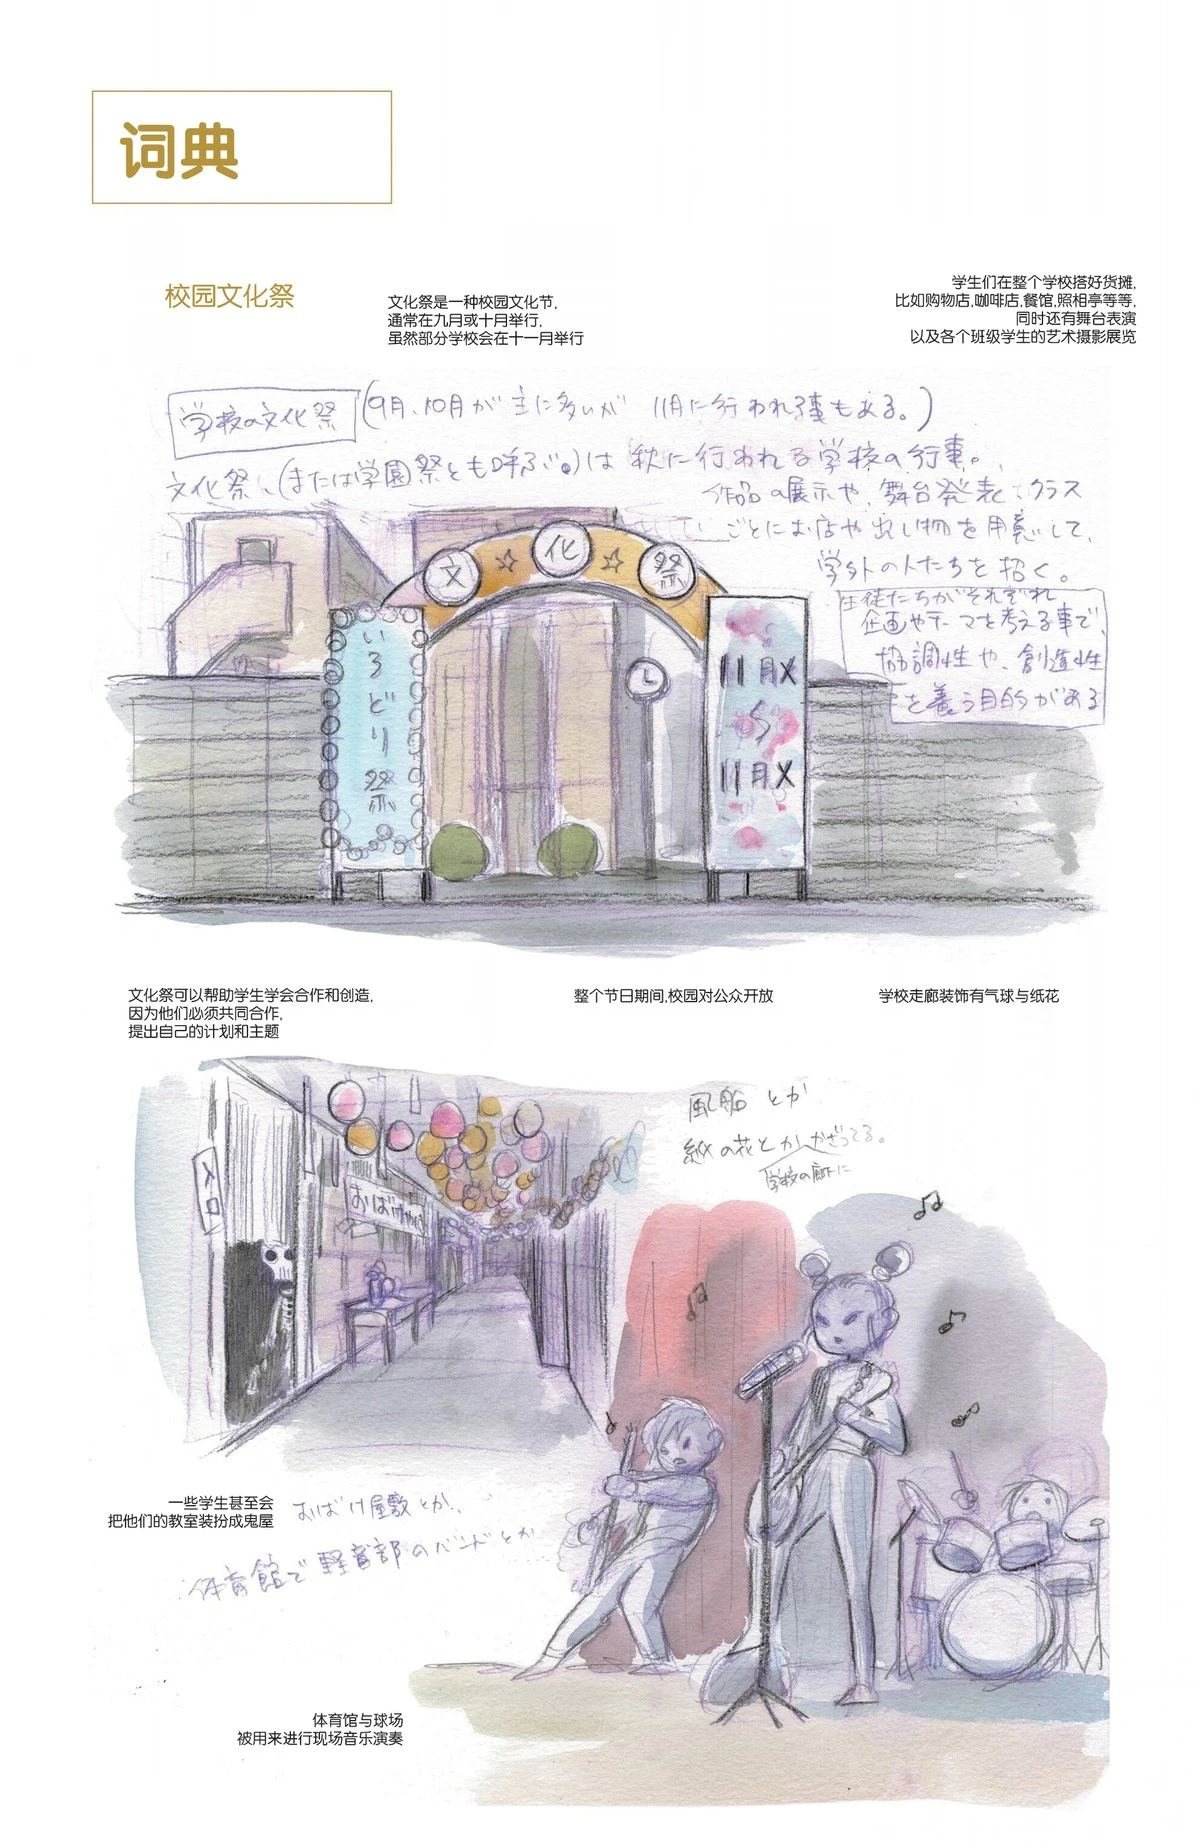 词典
校园文化祭
文化祭是一种校园文化节,
通常在九月或十月举行,
虽然部分学校会在十一月举行
学生们在整个学校搭好货摊,
比如购物店,咖啡店,餐馆,照相亭等等,
同时还有舞台表演
以及各个班级学生的艺术摄影展览
学校の文化祭 (9月、10月が主に多いが 11月に行われる事もある。)
文化祭、(または学園祭とも呼ぶ。)は 秋に行われる学校の行事。
作品の展示や、舞台発表、クラス
ごとにお店や出し物を用意して、
学外の人たちを招く。
生徒たちがそれぞれ
企画やテーマを考える事で、
協調性や、創造性
を養う目的がある
文☆化☆祭
いろどり祭
11月X
11月X
文化祭可以帮助学生学会合作和创造,
因为他们必须共同合作,
提出自己的计划和主题
整个节日期间,校园对公众开放
学校走廊装饰有气球与纸花
風船とか
紙の花とかかざってる。
学校の廊下に
入口
おばけやしき
一些学生甚至会
把他们的教室装扮成鬼屋
おばけ屋敷とか、
体育館で軽音部のバンドとか
体育馆与球场
被用来进行现场音乐演奏